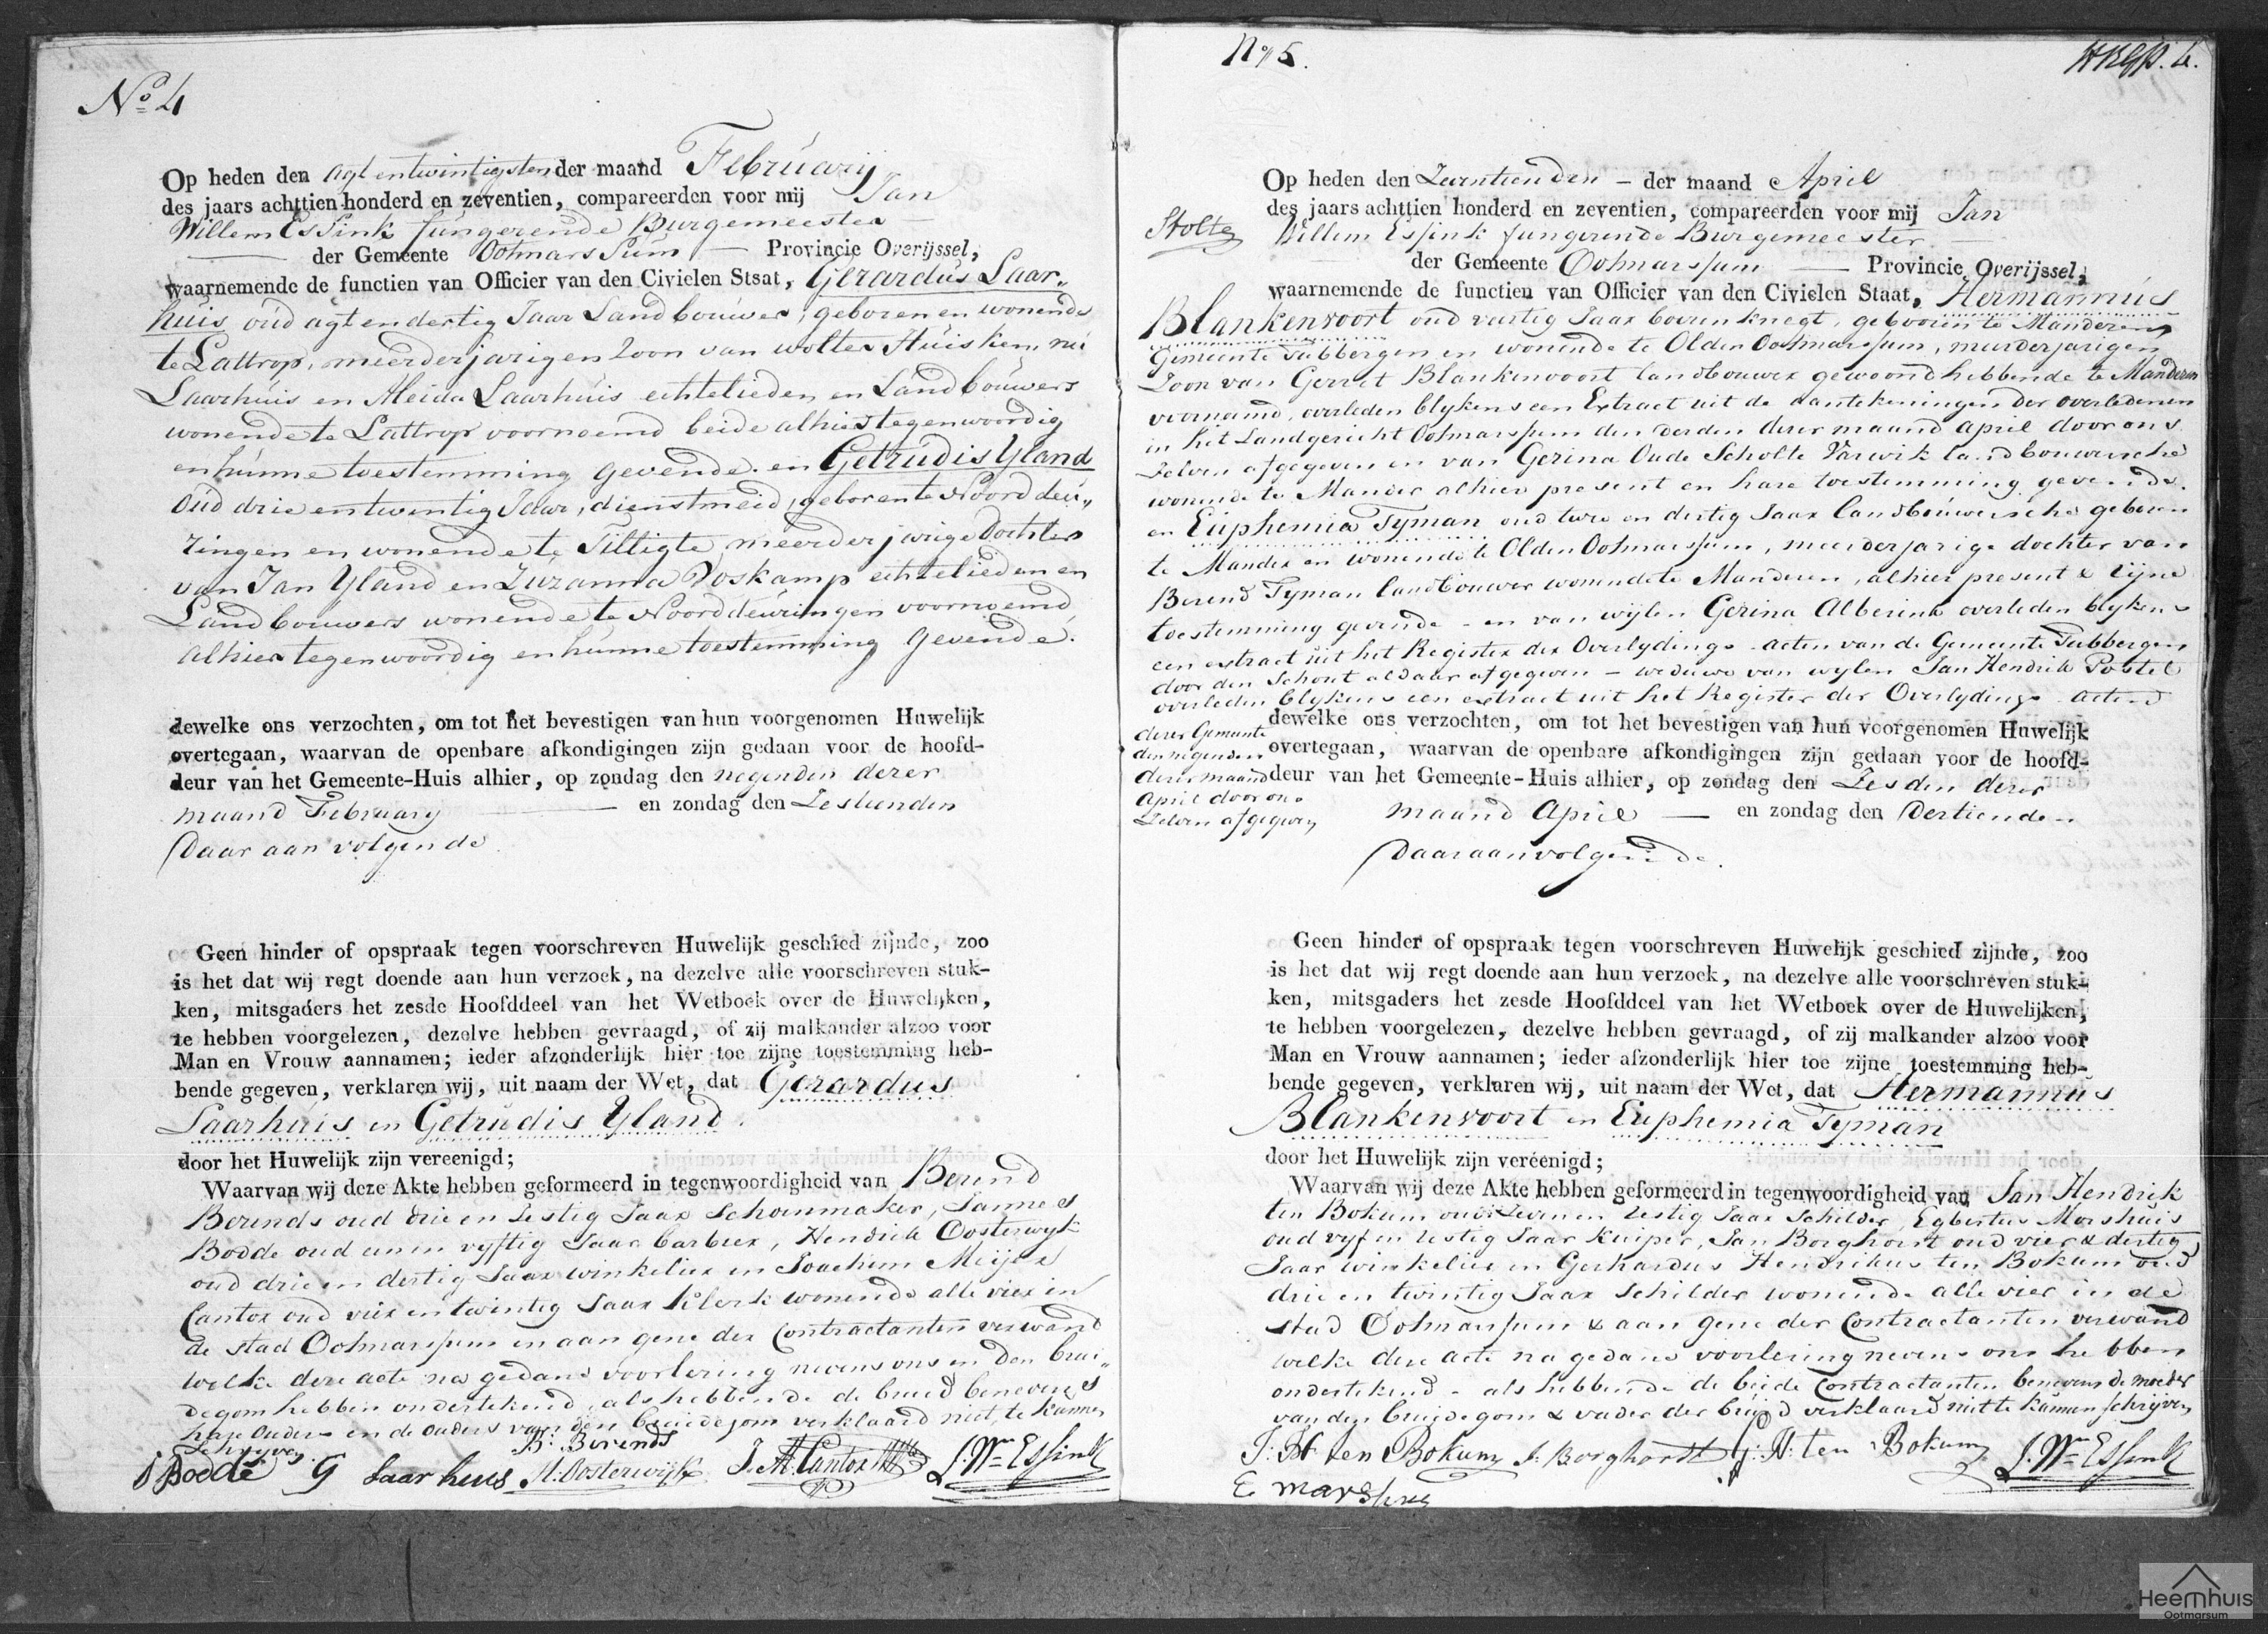 No 4
Op heden den agt en twintigsten der maand Februarij
des jaars achttien honderd en zeventien, compareerden voor mij Jan
Willem Essink fungerende Burgemeester
der Gemeente Ootmarssum — Provincie Overijssel,
waarnemende de functien van Officier van den Civielen Staat, Gerardus Laar„
huis oud agt en dertig Jaar Landbouwer, geboren en wonende
te Lattrop, meerderjarigen Zoon van Wolter Huisken, nu
Laarhuis en Aleida Laarhuis echtelieden en Landbouwers
wonende te Lattrop voornoemd beide alhier tegenwoordig
en hunne toestemming gevende. en Getrudis Yland
oud drie en twintig Jaar, dienstmeid, geboren te Noord deu„
ringen en wonende te Tiltigte meerderjarige Dochter
van Jan Yland en Zuzanna Voskamp echtelieden en
Landbouwers wonende te Noorddeuringen voornoemd
alhier tegenwoordig en hunne toestemming gevende.
dewelke ons verzochten, om tot het bevestigen van hun voorgenomen Huwelijk
overtegaan, waarvan de openbare afkondigingen zijn gedaan voor de hoofd-
deur van het Gemeente-Huis alhier, op zondag den negenden dezer
maand February — en zondag den Zestienden
Daar aan volgende
Geen hinder of opspraak tegen voorschreven Huwelijk geschied zijnde, zoo
is het dat wij regt doende aan hun verzoek, na dezelve alle voorschreven stuk-
ken, mitsgaders het zesde Hoofddeel van het Wetboek over de Huwelijken,
te hebben voorgelezen, dezelve hebben gevraagd, of zij malkander alzoo voor
Man en Vrouw aannamen; ieder afzonderlijk hier toe zijne toestemming heb-
bende gegeven, verklaren wij, uit naam der Wet, dat Gerardus
Laarhuis en Getrudis Yland.
door het Huwelijk zijn vereenigd;
Waarvan wij deze Akte hebben geformeerd in tegenwoordigheid van Berend
Berends oud drie en zestig Jaar Schoenmaker, Jannes
Bodde oud een en vyftig Jaar barbier, Hendrik Oosterwyk
oud drie en dertig Jaar winkelier en Joachim Meijer
Cantor oud vier en twintig Jaar Klerk wonende alle vier in
de stad Ootmarssum en aan gene der Contractanten verwand
welke deze acte na gedane voorlezing nevens ons en den brui„
degom hebben ondertekend, als hebbende de bruid benevens
hare Ouders en de ouders van den bruidegom verklaard niet te kunnen
Schryven.
B: Berends
J Bodde G Laarhuis H: Oosterwijk J. M. Cantor J. Wm Essink
No 5.
Op heden den Zeventienden – der maand April
des jaars achttien honderd en zeventien, compareerden voor mij Jan
Stolte
Willem Essink fungerende Burgemeester
der Gemeente Ootmarssum — Provincie Overijssel,
waarnemende de functien van Officier van den Civielen Staat, Hermannus
Blankenvoort oud veertig Jaar boerenknegt, gebooren te Manderen
Gemeente Tubbergen en wonende te Olden Ootmarssum, meerderjarigen
Zoon van Gerret Blankenvoort landbouwer gewoond hebbende te Manderen
voornaamd, overleden blykens een Extract uit de aantekeningen der overledenen
in het Landgericht Ootmarssum den derden dezer maand April door ons
zelven afgegeven en van Gerina Oude Scholte Varwik landbouwersche
wonende te Mander alhier present en hare toestemming gevende.
en Euphemia Tyman oud twee en dertig Jaar landbouwersche geboren
te Mander en wonende te Olden Ootmarssum, meerderjarige dochter van
Berend Tyman landbouwer wonende te Manderen, alhier present & zijne
toestemming gevende – en van wijlen Gerina Alberink overleden blykens
een extract uit het Register der Overlydings-acten van de Gemeente Tubbergen
door den Schout aldaar afgegeven – weduwe van wylen Jan Hendrik
overleden blykens een extract uit het Register der Overlydings acten
dezer Gemeente
den negenden
dezer maand
April door ons
Zelven afgegeven
dewelke ons verzochten, om tot het bevestigen van hun voorgenomen Huwelijk
overtegaan, waarvan de openbare afkondigingen zijn gedaan voor de hoofd-
deur van het Gemeente-Huis alhier, op zondag den Zesden dezer
maand April — en zondag den Dertienden
Daaraanvolgende.
Geen hinder of opspraak tegen voorschreven Huwelijk geschied zijnde, zoo
is het dat wij regt doende aan hun verzoek, na dezelve alle voorschreven stuk-
ken, mitsgaders het zesde Hoofddeel van het Wetboek over de Huwelijken,
te hebben voorgelezen, dezelve hebben gevraagd, of zij malkander alzoo voor
Man en Vrouw aannamen; ieder afzonderlijk hier toe zijne toestemming heb-
bende gegeven, verklaren wij, uit naam der Wet, dat Hermannus
Blankenvoort en Euphemia Tyman
door het Huwelijk zijn vereenigd;
Waarvan wij deze Akte hebben geformeerd in tegenwoordigheid van Jan Hendrik
ten Bokum oud zeven en zestig Jaar Schilder, Egbertus Morshuis
oud vyf en zestig Jaar Kuiper, Jan Borghorst oud vier & dertig
Jaar winkelier en Gerhardus Hendrikus ten Bokum oud
drie en twintig Jaar Schilder wonende alle vier in de
stad Ootmarssum & aan gene der Contractanten verwand
welke deze acte na gedane voorlezing nevens ons hebben
ondertekend – als hebbende de beide Contractanten benevens de moeder
van den bruidegom & vader der bruid verklaard niet te kunnen schryven
J: H ten Bokum J. Borghorst G: H: ten Bokum J. Wm Essink
E morshuis
Heemhuis
Ootmarsum